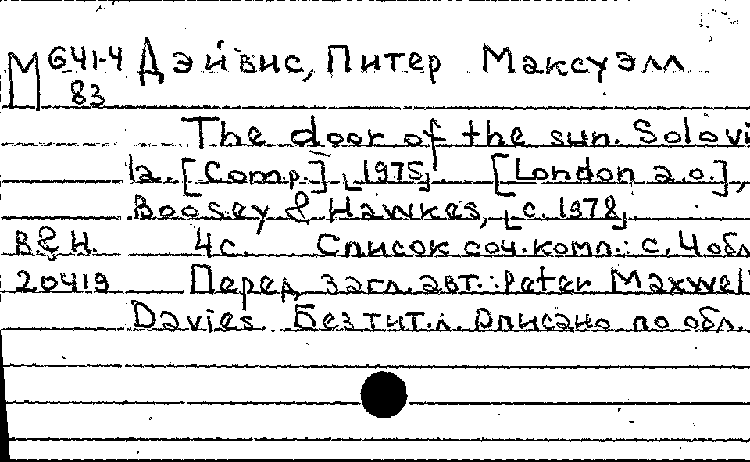 М 641-4 Дэйвис, Питер Максуэлл
83
The door of the sun. Solo vi
la. [Comp.] [1975]. [London a.o.],
Boosey & Hawkes, [c. 1978].
B&H. 4 с. Список соч. комп.: с. 4 обл
20419 Перед загл. авт.: Peter Maxwel
Davies. Без тит. л. Описано по обл.